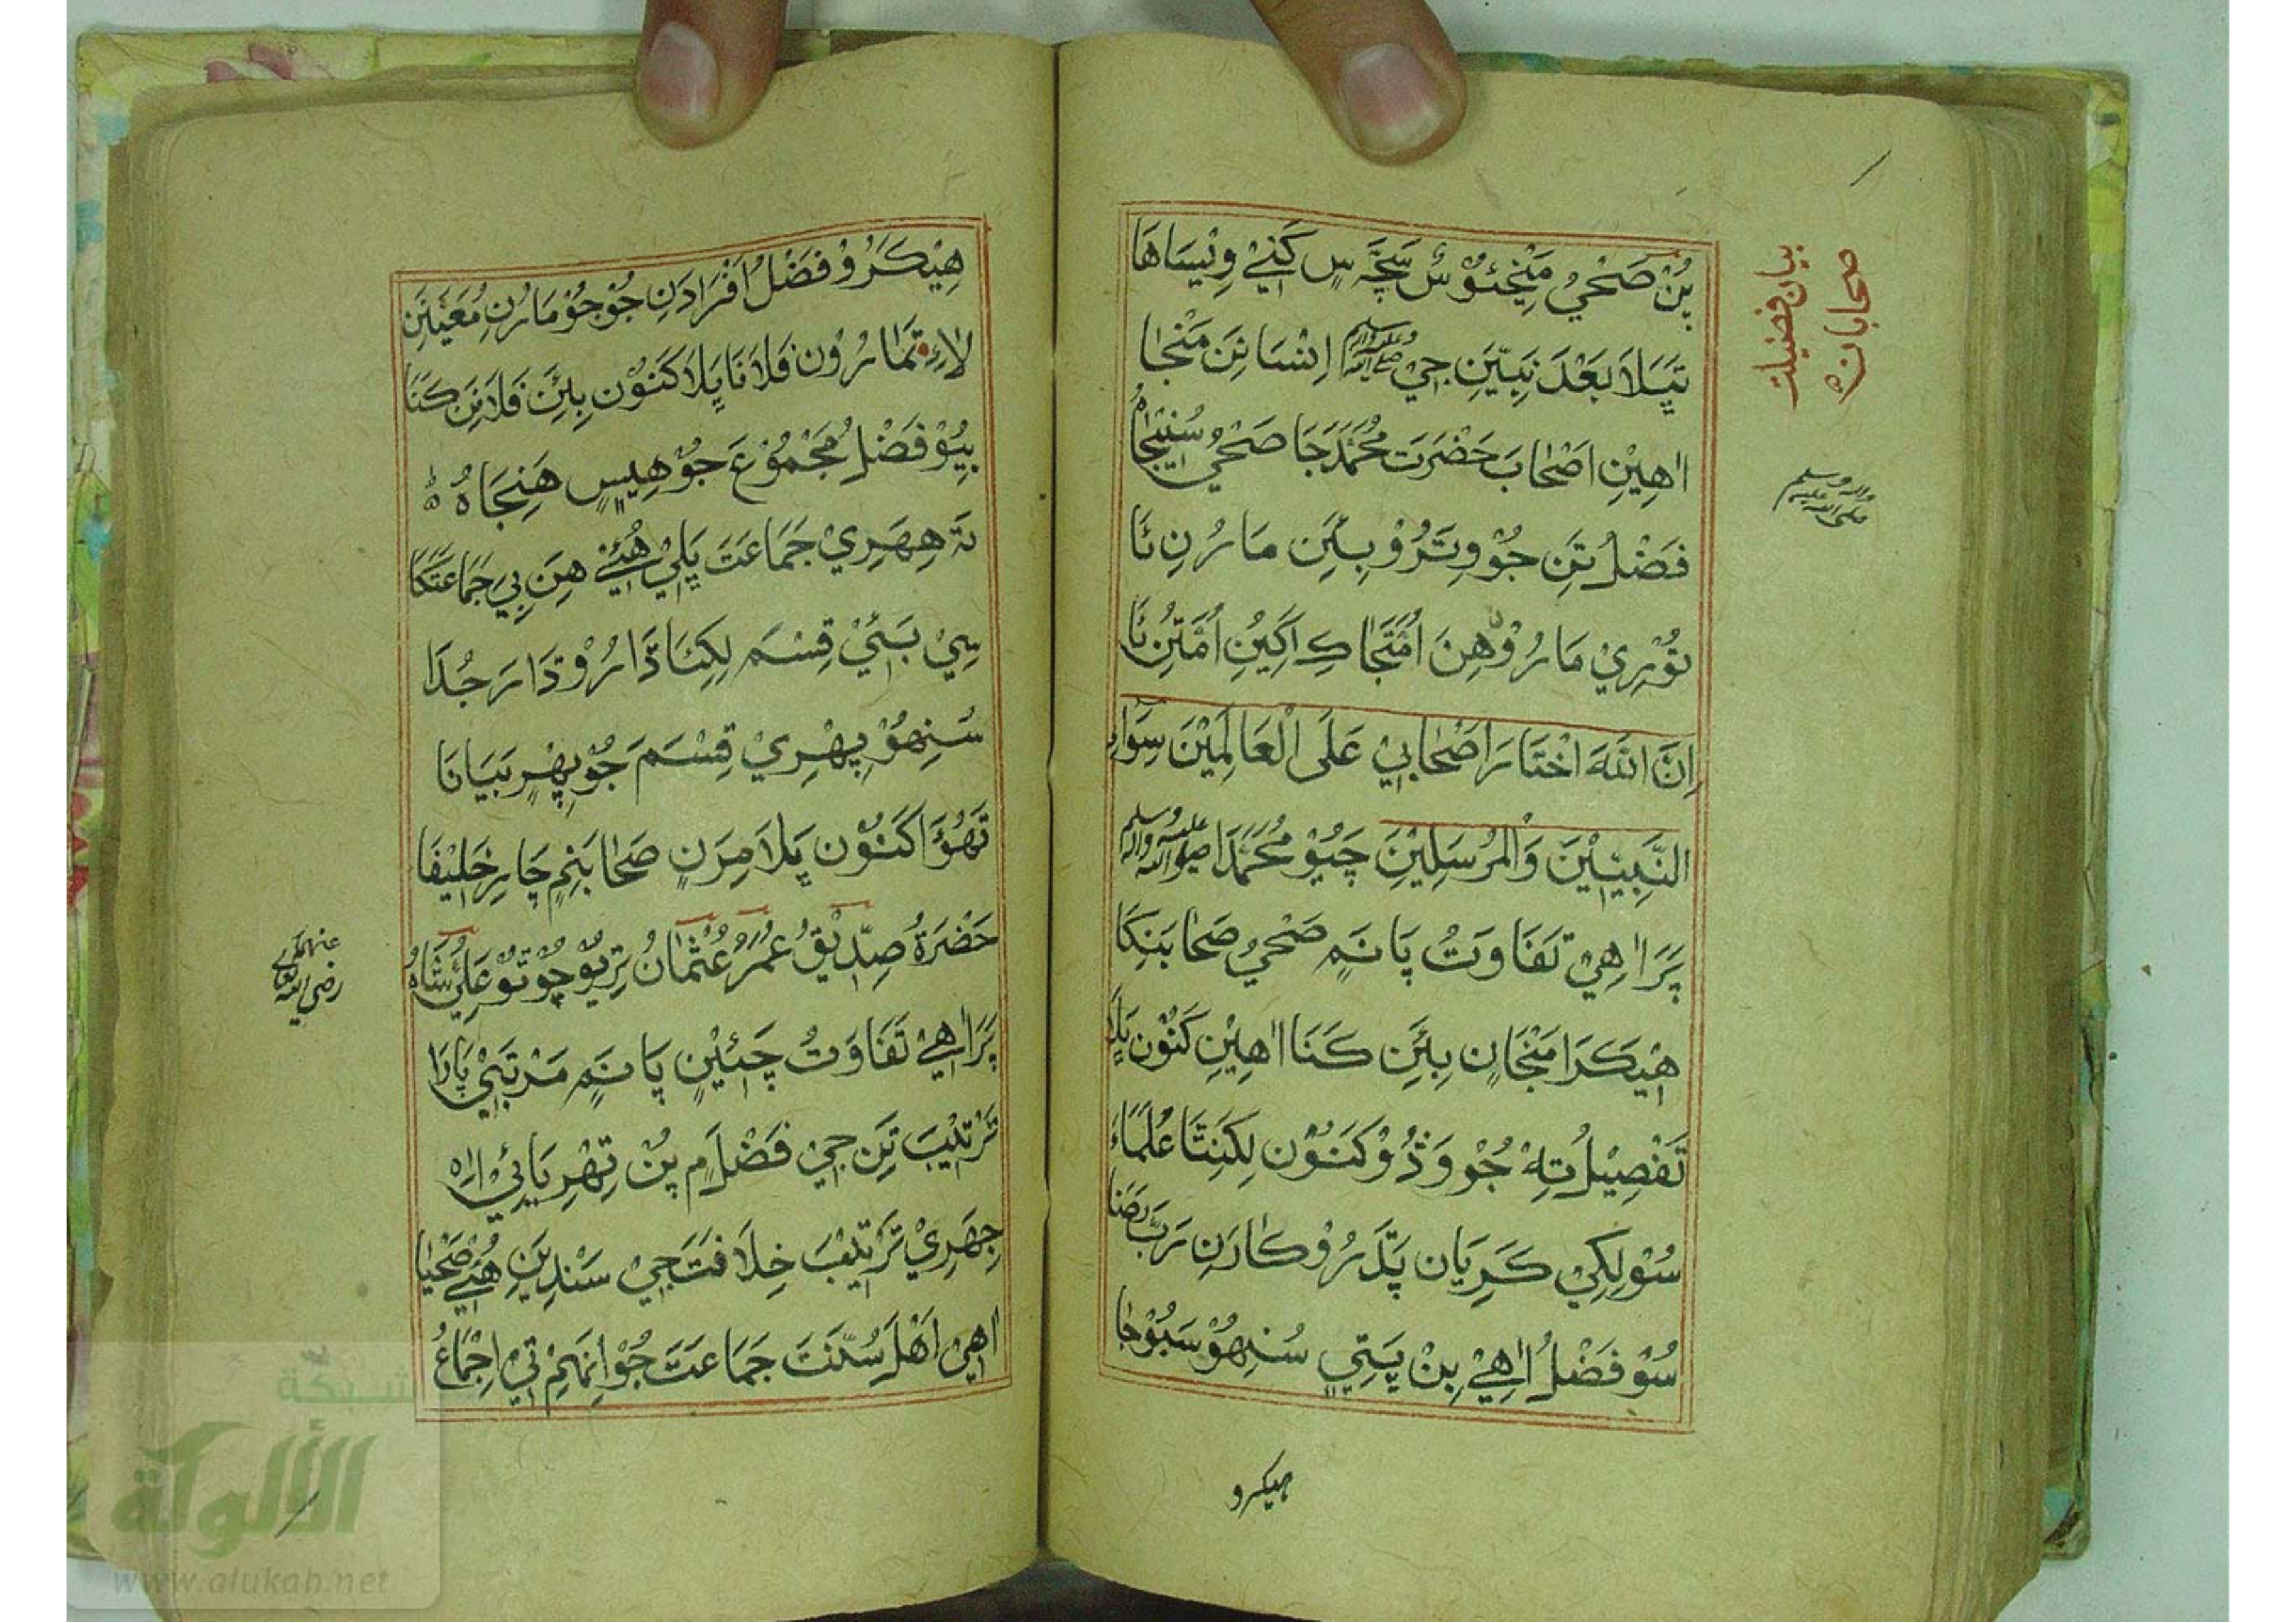 بيان فضيلت
صحابان
پُنْ صَحْيُ مَنِجئُوْسُ سَچَّہ سٖ كَنِيْ وِيْسَاهَا
پَيلَا بَعْدَ نَبِيّٖنِ جِيْ ﷺ اِنْسَانِنَ مَنْجَا
اٰهِيْنِ اَصْحَابَ حَضْرَتَ مُحَمَّدَ جَا صَحْيُ سُڻِيْجَا
صلى الله عليه وآله وسلم
فَضْلُ تَنِ جُوْ وِتَرُوْ بِئَنِ مَارُنِ نَا
نُوْرِيْ مَارُوْ هِنَ اُمَّتَجَا كِ اَڳِيُنِ اُمَّتُنِ نَا
اِنَّ اللهَ اخْتَارَ اَصْحَابِيْ عَلَى الْعَالَمِيْنَ سِوَاءِ
النَّبِيّٖيْنَ وَالْمُرْسَلِيْنَ چَيُوْ مُحَمَّدَا صلى الله عليه وآله وسلم
پَرَ اٰهِيْ تَفَاوَتُ پَانَمٖ صَحْيُ صَحَابَنِكَا
هِيْكَرَا مَنْجَانٖ بِئَنِ كَنَا اٰهِيْنِ كَنُوْن پَلَا
تَفْصِيْلُ تِهْ جُوْ وَڎُوْ كَنُوْن لِكَنِتَا عُلَمَاءَ
سُوْ لِكِيْ كَرِيَان پَڌَرُوْ كَارَنِ رَبَّ رَضَا
سُوْ فَضْلُ اٰهِيْ بِنْ پَتِيٖ سُنِهُوْ سَبُوْجَا
هيكرو
هِيْكَرُوْ فَضْلُ اَفْرَادَنِ جُوْ جُوْ مَارُنِ مُعَيَّنَنِ
لَاءِ تَمَارُوْن فَلَانَا پَلَا كَنُوْن بِئَنِ فَلَانِنَ كَنَا
بِيُوْ فَضْلُ مَجْمُوْعَ جُوْ هِيسٖ هَنِجَاهُ
تَہ هِهَرِيْ جَمَاعَتَ پَلِيْ هُئِيْ هِنَ بِيَ جَمَاعَتَكَا
سِيْ بَئِيْ قِسْمَ لِكِئَا دَارُوْ دَارَ جُدَا
سُنِهُوْ پِهْرِيْ قِسْمَ جُوْ پِهْرِ بَيَانَا
تَهُوْ اَكَنُوْن پَلَا مِرَنٖ صَحَابَنِمٖ چَارِ خَلِيْفَا
حَضْرَةُ صِدِّيْقُ عُمَرُ عُثْمَانُ تِرِيُوْ چُوْتُوْ عَلِيُّ شَاهُ
رضى الله تعالى عنهم
پَرَ اٰهِيْ تَفَاوَتُ چَئِيْنٖ پَانَمٖ مَرْتَبَيْ پَارَا
تَرْتِيْبَ تَنِ جِيْ فَضْلَمٖ پُنْ تِهْرِيَائِيْ اٰهِ
جِهَرِيْ تَرْتِيْبَ خِلَافَتَ جِيْ سَنْدِيَنِ هُئِيْ صَحْيَا
اٰهِيْ اَهْلَ سُنَّتَ جَمَاعَتَ جُوْ اِنَهِمٖ تِيْ اِجْمَاعُ
شبكة
الألوكة
www.alukah.net